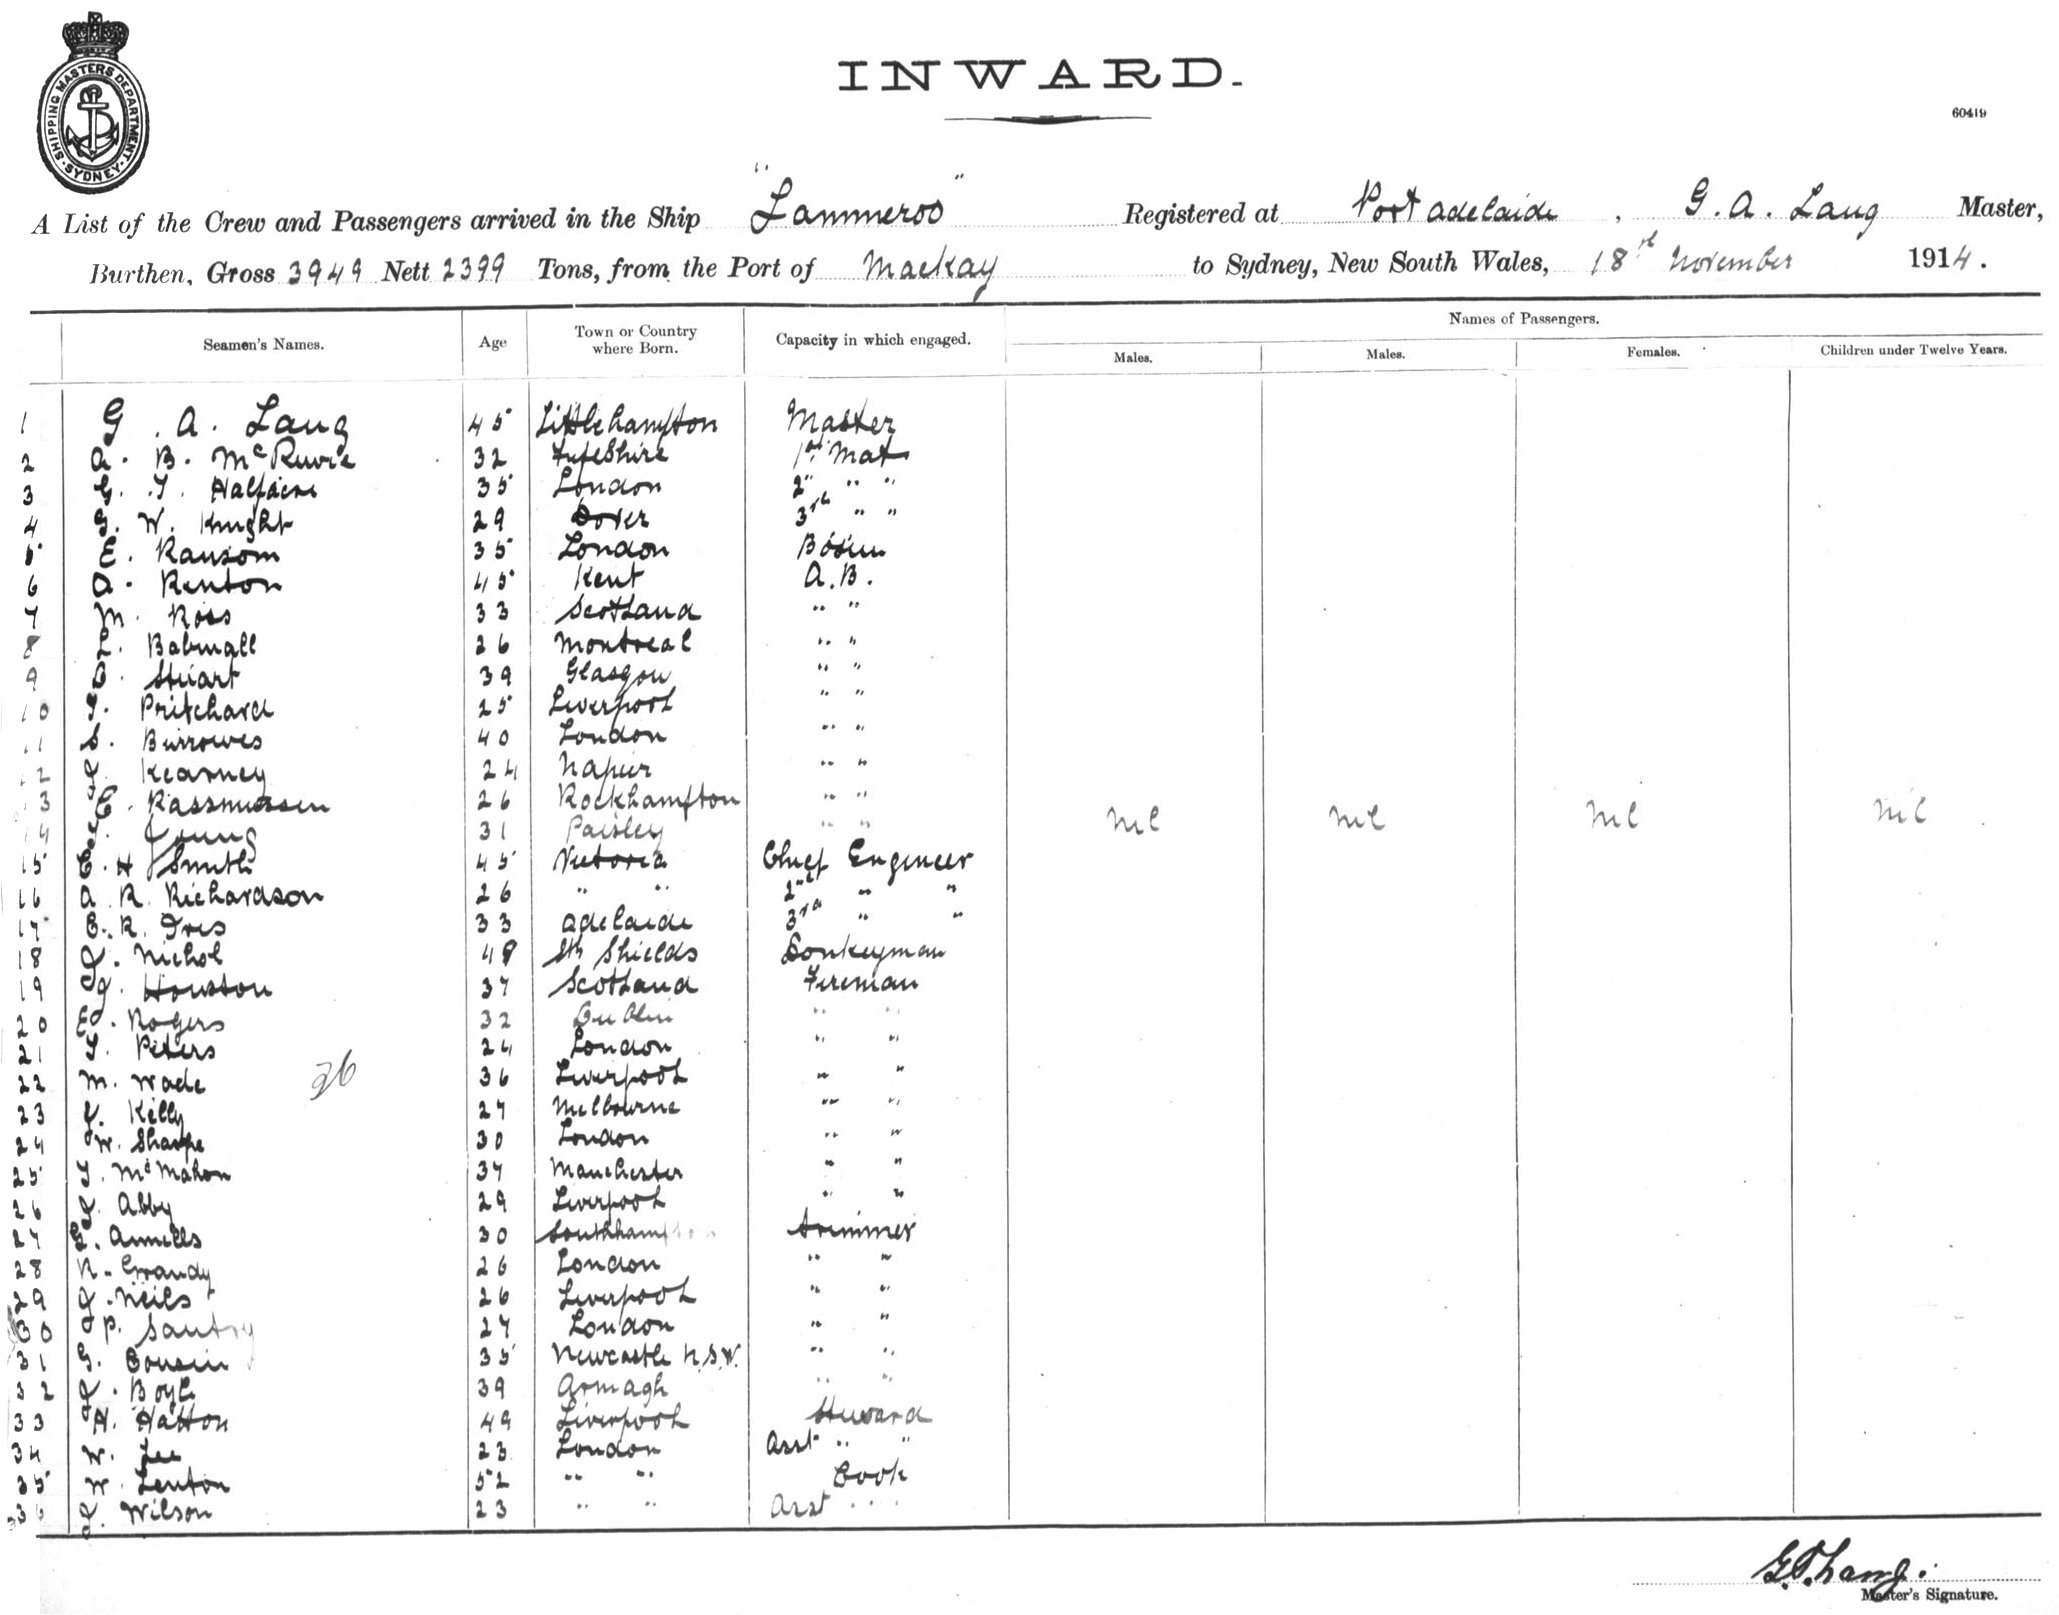 SHIPPING MASTERS DEPARTMENT · SYDNEY ·
INWARD.
60419
A List of the Crew and Passengers arrived in the Ship "Lammeroo" Registered at Port Adelaide, G. A. Lang Master,
Burthen, Gross 3949 Nett 2399 Tons, from the Port of Mackay to Sydney, New South Wales, 18th November 1914.
Seamen's Names. Age Town or Country where Born. Capacity in which engaged. Names of Passengers.
Males. Males. Females. Children under Twelve Years.
1 G. A. Lang 45 Littlehampton Master
2 A. B. McRuvie 32 Fifeshire 1st Mate
3 G. T. Halfacre 35 London 2nd " "
4 G. W. Knight 29 Dover 3rd " "
5 E. Ransom 35 London Bosun
6 A. Renton 45 Kent A.B.
7 M. Ross 33 Scotland " "
8 26 Montreal " "
9 Stuart 39 Glasgow " "
10 Pritchard 25 Liverpool " "
11 Burrowes 40 London " "
12 J. Kearney 24 Napier " "
13 C. Rassmussen 26 Rockhampton " "
14 Young 31 Paisley " "
15 C. H Smith 45 Victoria Chief Engineer
16 A. R. Richardson 26 " " 2nd " "
17 R. Ives 33 Adelaide 3rd " "
18 J. Nichol 48 Sth Shields Donkeyman
19 J. Houston 37 Scotland Fireman
20 Rogers 32 Dublin " "
21 T. Peters 24 London " "
22 M. Wade 36 Liverpool " "
36
23 J. Kelly 27 Melbourne " "
24 W. Sharpe 30 London " "
25 T. McMahon 37 Manchester " "
26 J. Abby 29 Liverpool " "
27 Annells 30 Southhampton Trimmer
28 R. Grandy 26 London " "
29 J. Neils 26 Liverpool " "
30 P. Santry 27 London " "
31 G. Cousin 35 Newcastle N.S.W. " "
32 J. Boyle 39 Armagh " "
33 H. Hatton 49 Liverpool Steward
34 W. Lee 23 London Asst " "
35 W. Lenton 52 " " Cook
36 J. Wilson 23 " " Asst " "
Nil Nil Nil Nil
Lang.
Master's Signature.